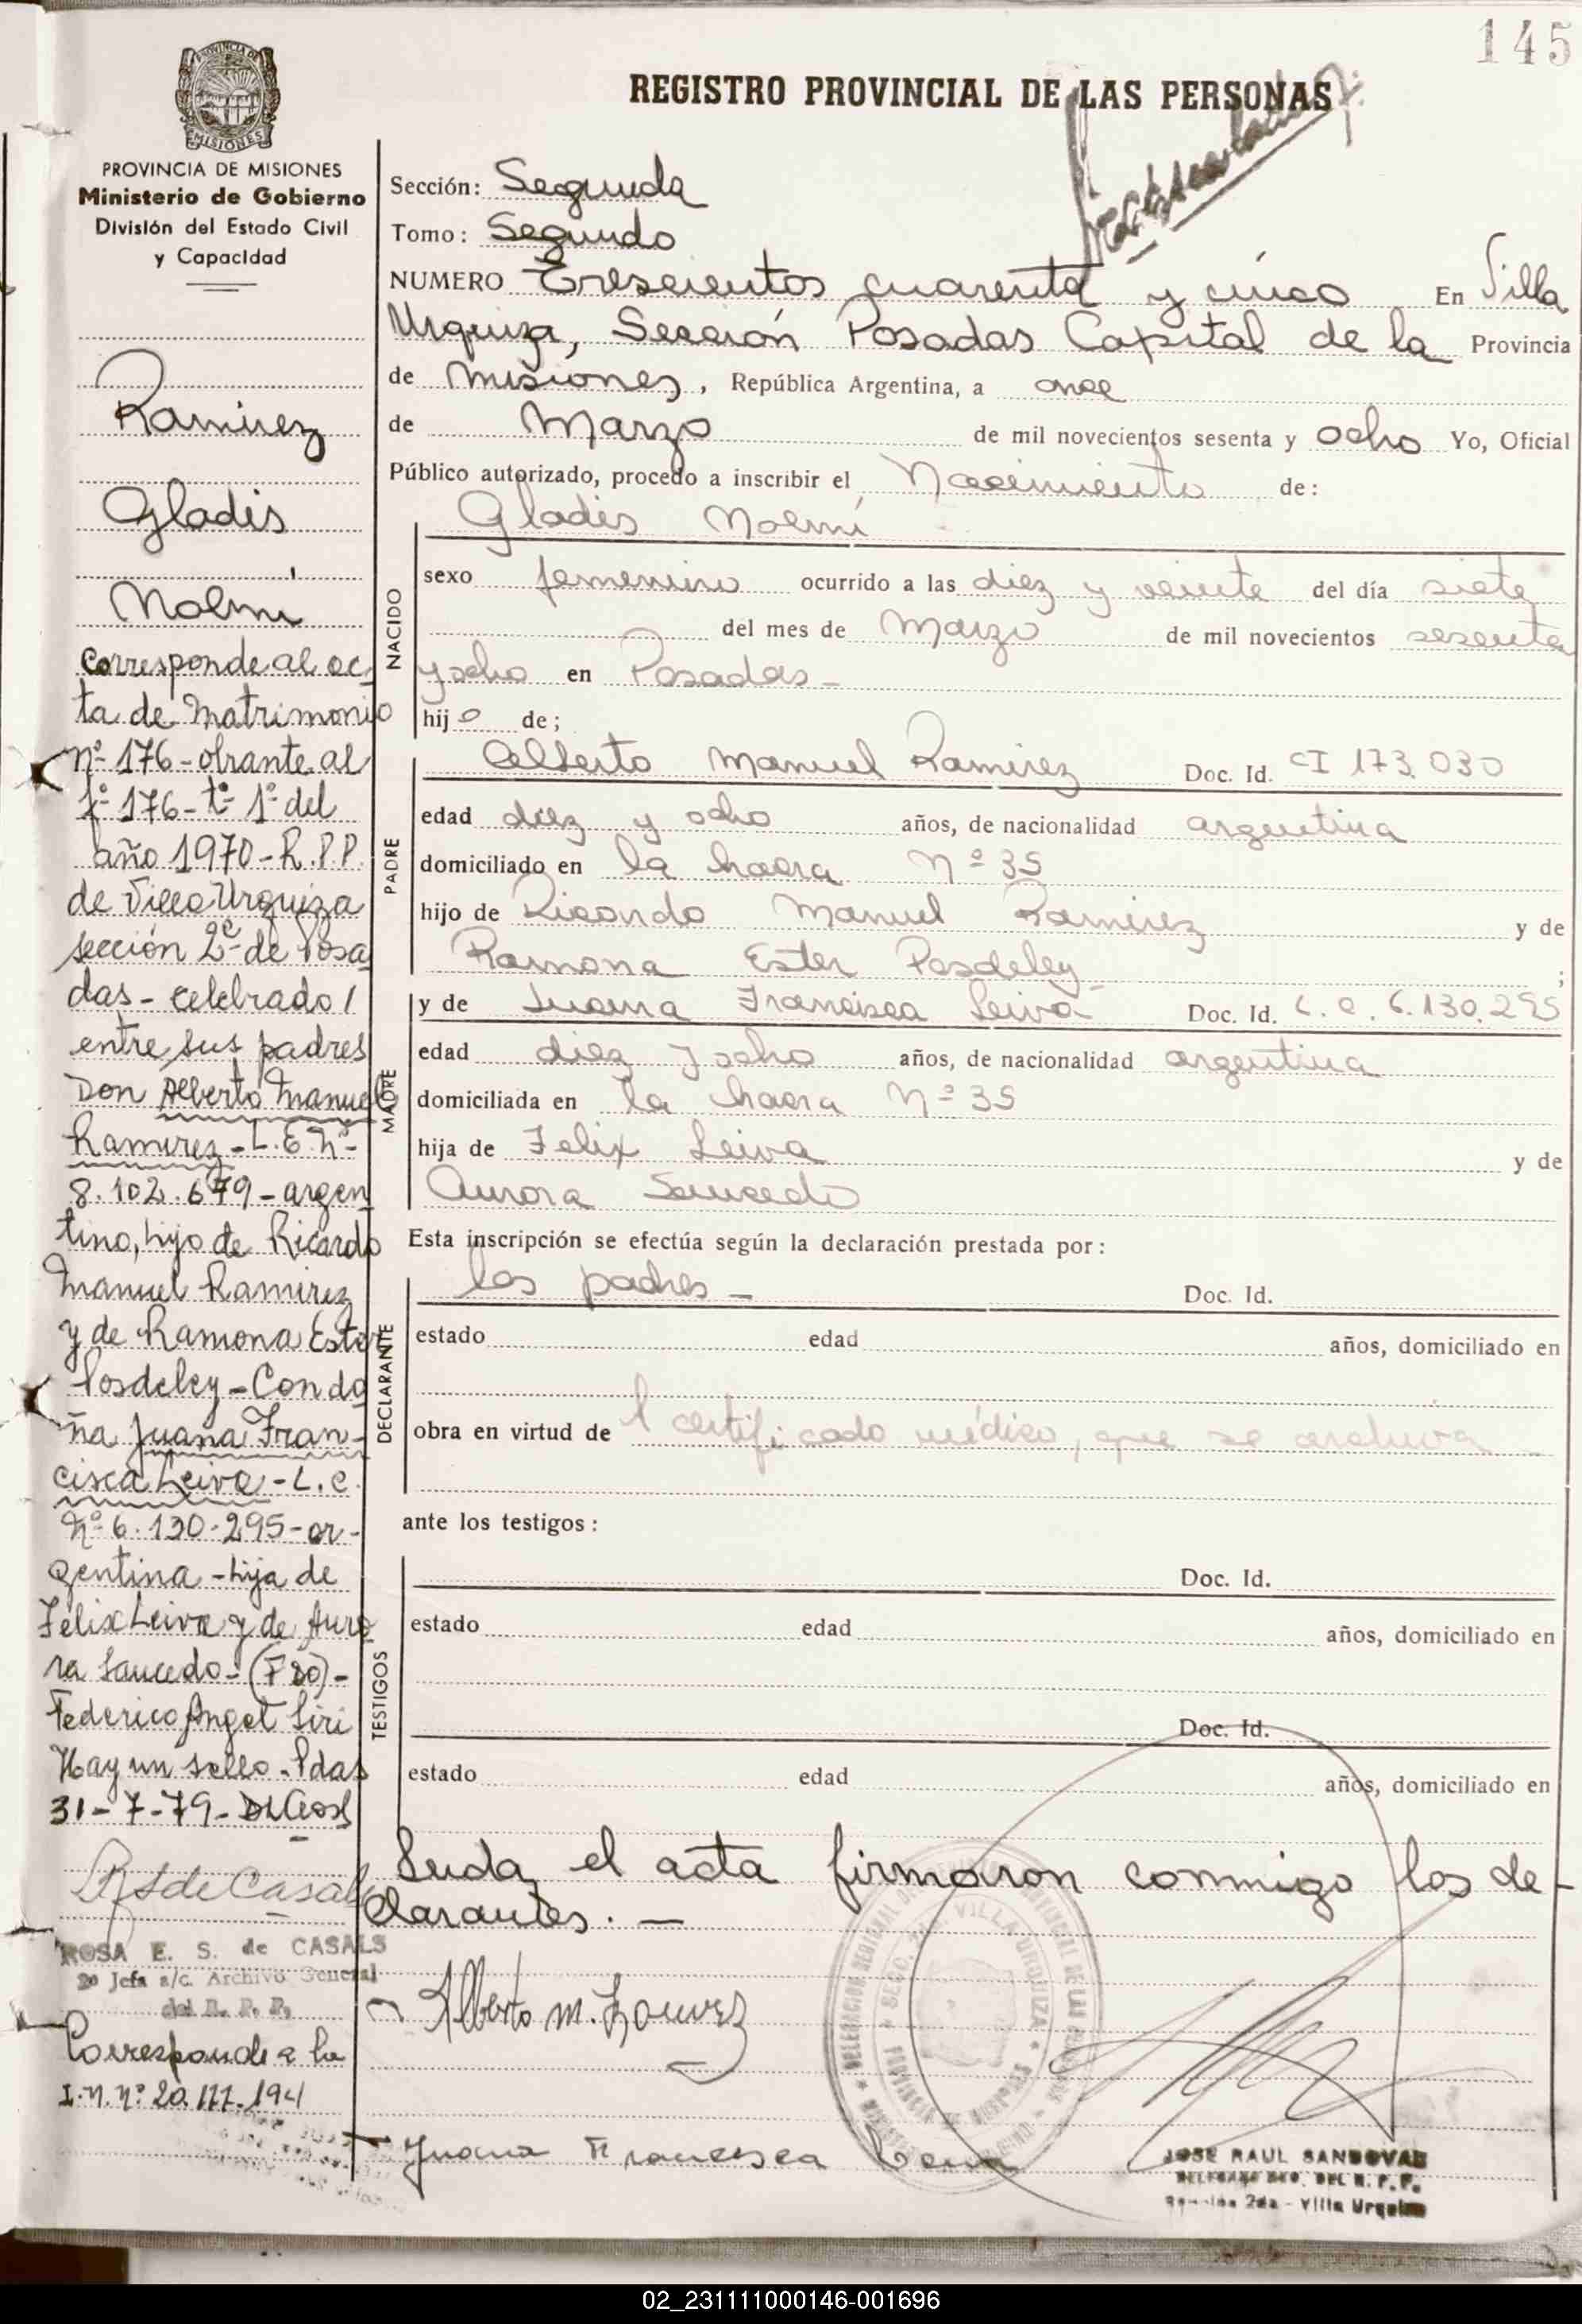 145
REGISTRO PROVINCIAL DE LAS PERSONAS
MISIONES
PROVINCIA DE MISIONES
Ministerio de Gobierno
División del Estado Civil
y Capacidad
Ramirez
Gladis
Noemí
corresponde al ac-
ta de Matrimonio
nº 176 - obrante al
fº 176 - tº 1º del
año 1970 - R.P.P.
de Villa Urquiza
sección 2ª de Posa
das - celebrado /
entre sus padres
Don Alberto Manuel
Ramirez - L.E. Nº
8.102.679 - argen
tino, hijo de Ricardo
Manuel Ramirez
y de Ramona Ester
Posdeley - Con do
ña Juana Fran-
cisca Leiva - L.C.
Nº 6.130.295 - ar-
gentina - hija de
Félix Leiva y de Auro
ra Saucedo - (Fdo) -
Federico Angel Siri
Hay un sello - Pdas
31-7-79 -
ROSA E. S. de CASALS
2º Jefa a/c. Archivo General
del R. P. P.
Corresponde a la
I.N. Nº 20.111.194
Sección: Segunda
Tomo: Segundo
NUMERO Trescientos cuarenta y cinco En Villa
Urquiza, Sección Posadas Capital de la Provincia
de Misiones, República Argentina, a once
de Marzo de mil novecientos sesenta y ocho Yo, Oficial
Público autorizado, procedo a inscribir el Nacimiento de:
Gladis Noemí
NACIDO
sexo femenino ocurrido a las diez y veinte del día siete
del mes de Marzo de mil novecientos sesenta
y ocho en Posadas -
hija de;
PADRE
Alberto Manuel Ramirez Doc. Id. CI 173.030
edad diez y ocho años, de nacionalidad argentina
domiciliado en la chacra Nº 35
hijo de Ricardo Manuel Ramirez y de
Ramona Ester Posdeley ;
MADRE
y de Juana Francisca Leiva Doc. Id. L.C. 6.130.295
edad diez y ocho años, de nacionalidad argentina
domiciliada en la chacra Nº 35
hija de Felix Leiva y de
Aurora Saucedo
Esta inscripción se efectúa según la declaración prestada por:
DECLARANTE
los padres - Doc. Id.
estado edad años, domiciliado en
obra en virtud de l certificado médico, que se archiva
ante los testigos:
TESTIGOS
Doc. Id.
estado edad años, domiciliado en
Doc. Id.
estado edad años, domiciliado en
Leida el acta firmaron conmigo los de-
clarantes. -
Alberto M. Ramirez
Juana Francisca Leiva
JOSE RAUL SANDOVAL
Sección 2da - Villa Urquiza
02_231111000146-001696